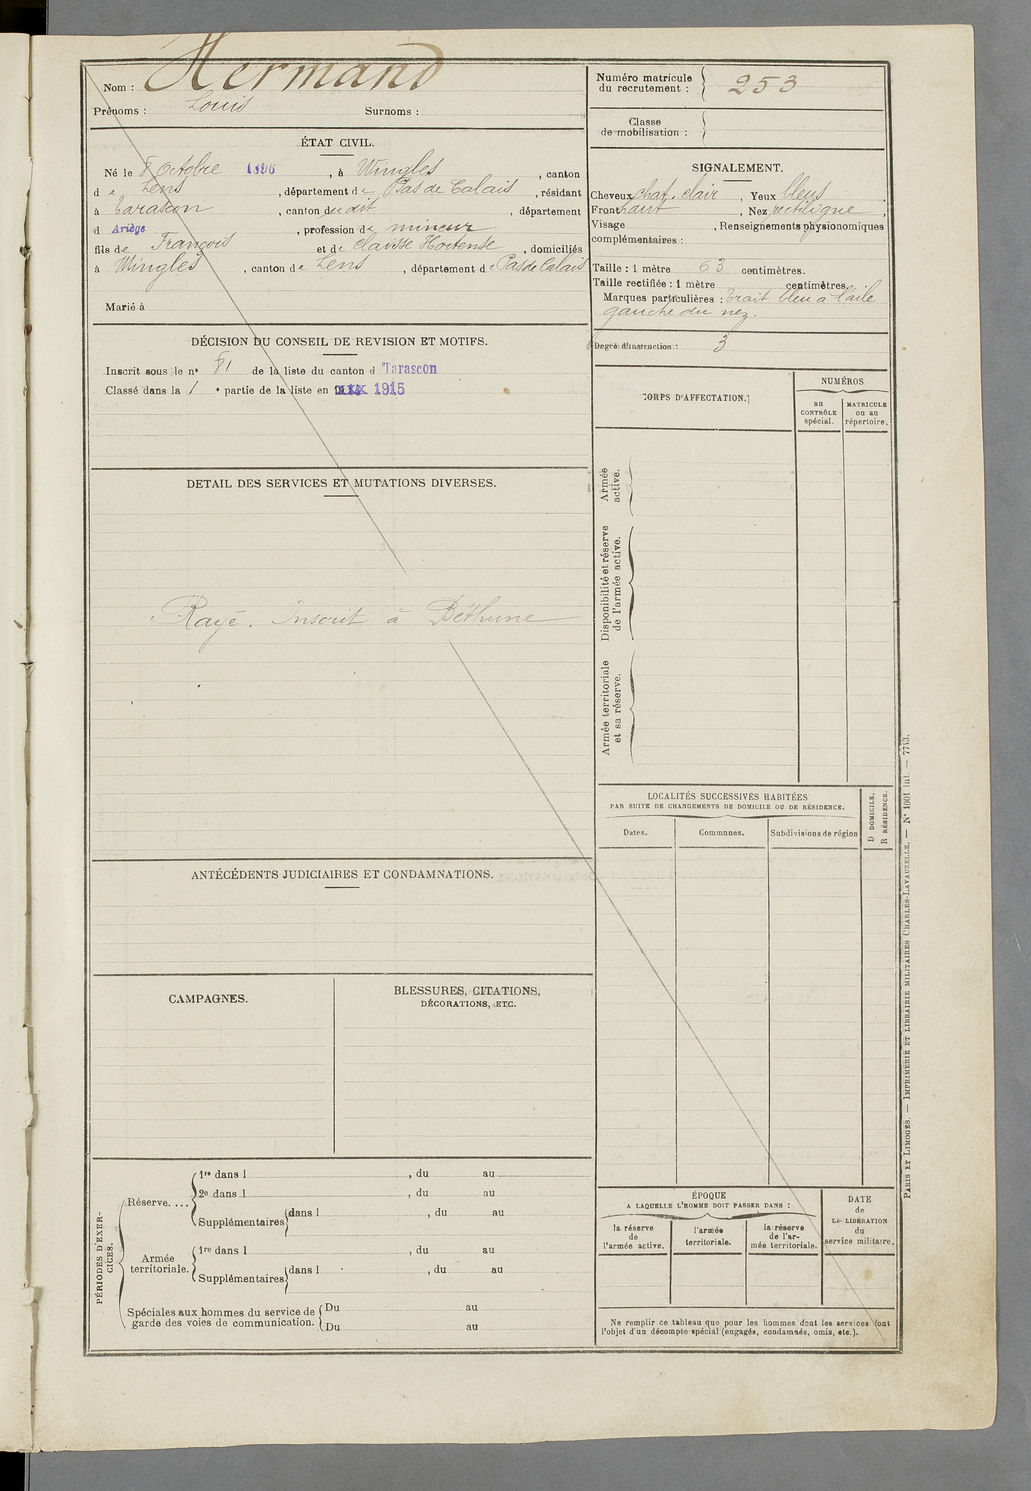 Nom : Hermand
Prénoms : Louis Surnoms :
ÉTAT CIVIL.
Né le 8 Octobre 1896, à Wingles, canton
de Lens, département de Pas de Calais, résidant
à Tarascon, canton dudit, département
d Ariège, profession de mineur
fils de François et de Claisse Hortense, domiciliés
à Wingles, canton de Lens, département de Pas de Calais
Marié à
DÉCISION DU CONSEIL DE REVISION ET MOTIFS.
Inscrit sous le n° 81 de la liste du canton d Tarascon
Classé dans la 1e partie de la liste en 1915
DETAIL DES SERVICES ET MUTATIONS DIVERSES.
Rayé. Inscrit à Béthune
ANTÉCÉDENTS JUDICIAIRES ET CONDAMNATIONS.
CAMPAGNES.
BLESSURES, CITATIONS,
DÉCORATIONS, ETC.
PÉRIODES D'EXER-
CICES.
Réserve. ...
1re dans l , du au
2e dans l , du au
Supplémentaires dans l , du au
Armée
territoriale.
1re dans l , du au
Supplémentaires dans l , du au
Spéciales aux hommes du service de
garde des voies de communication.
Du au
Du au
Numéro matricule
du recrutement : 253
Classe
de mobilisation :
SIGNALEMENT.
Cheveux chat. clair, Yeux bleus,
Front haut, Nez rectiligne,
Visage , Renseignements physionomiques
complémentaires :
Taille : 1 mètre 63 centimètres.
Taille rectifiée : 1 mètre centimètres.
Marques particulières : Trait bleu à l'aile
gauche du nez.
Degré d'instruction : 3
CORPS D'AFFECTATION.
NUMÉROS
au
CONTRÔLE
spécial.
MATRICULE
ou au
répertoire.
Armée
active.
Disponibilité et réserve
de l'armée active.
Armée territoriale
et sa réserve.
LOCALITÉS SUCCESSIVES HABITÉES
PAR SUITE DE CHANGEMENTS DE DOMICILE OU DE RÉSIDENCE.
Dates. Communes. Subdivisions de région
D DOMICILE.
R RÉSIDENCE.
ÉPOQUE
A LAQUELLE L'HOMME DOIT PASSER DANS :
la réserve
de
l'armée active.
l'armée
territoriale.
la réserve
de l'ar-
mée territoriale.
DATE
de
LA LIBÉRATION
du
service militaire.
Ne remplir ce tableau que pour les hommes dont les services font
l'objet d'un décompte spécial (engagés, condamnés, omis, etc.).
PARIS ET LIMOGES. — IMPRIMERIE ET LIBRAIRIE MILITAIRES CHARLES-LAVAUZELLE. — N° 1001 int. — 7713.